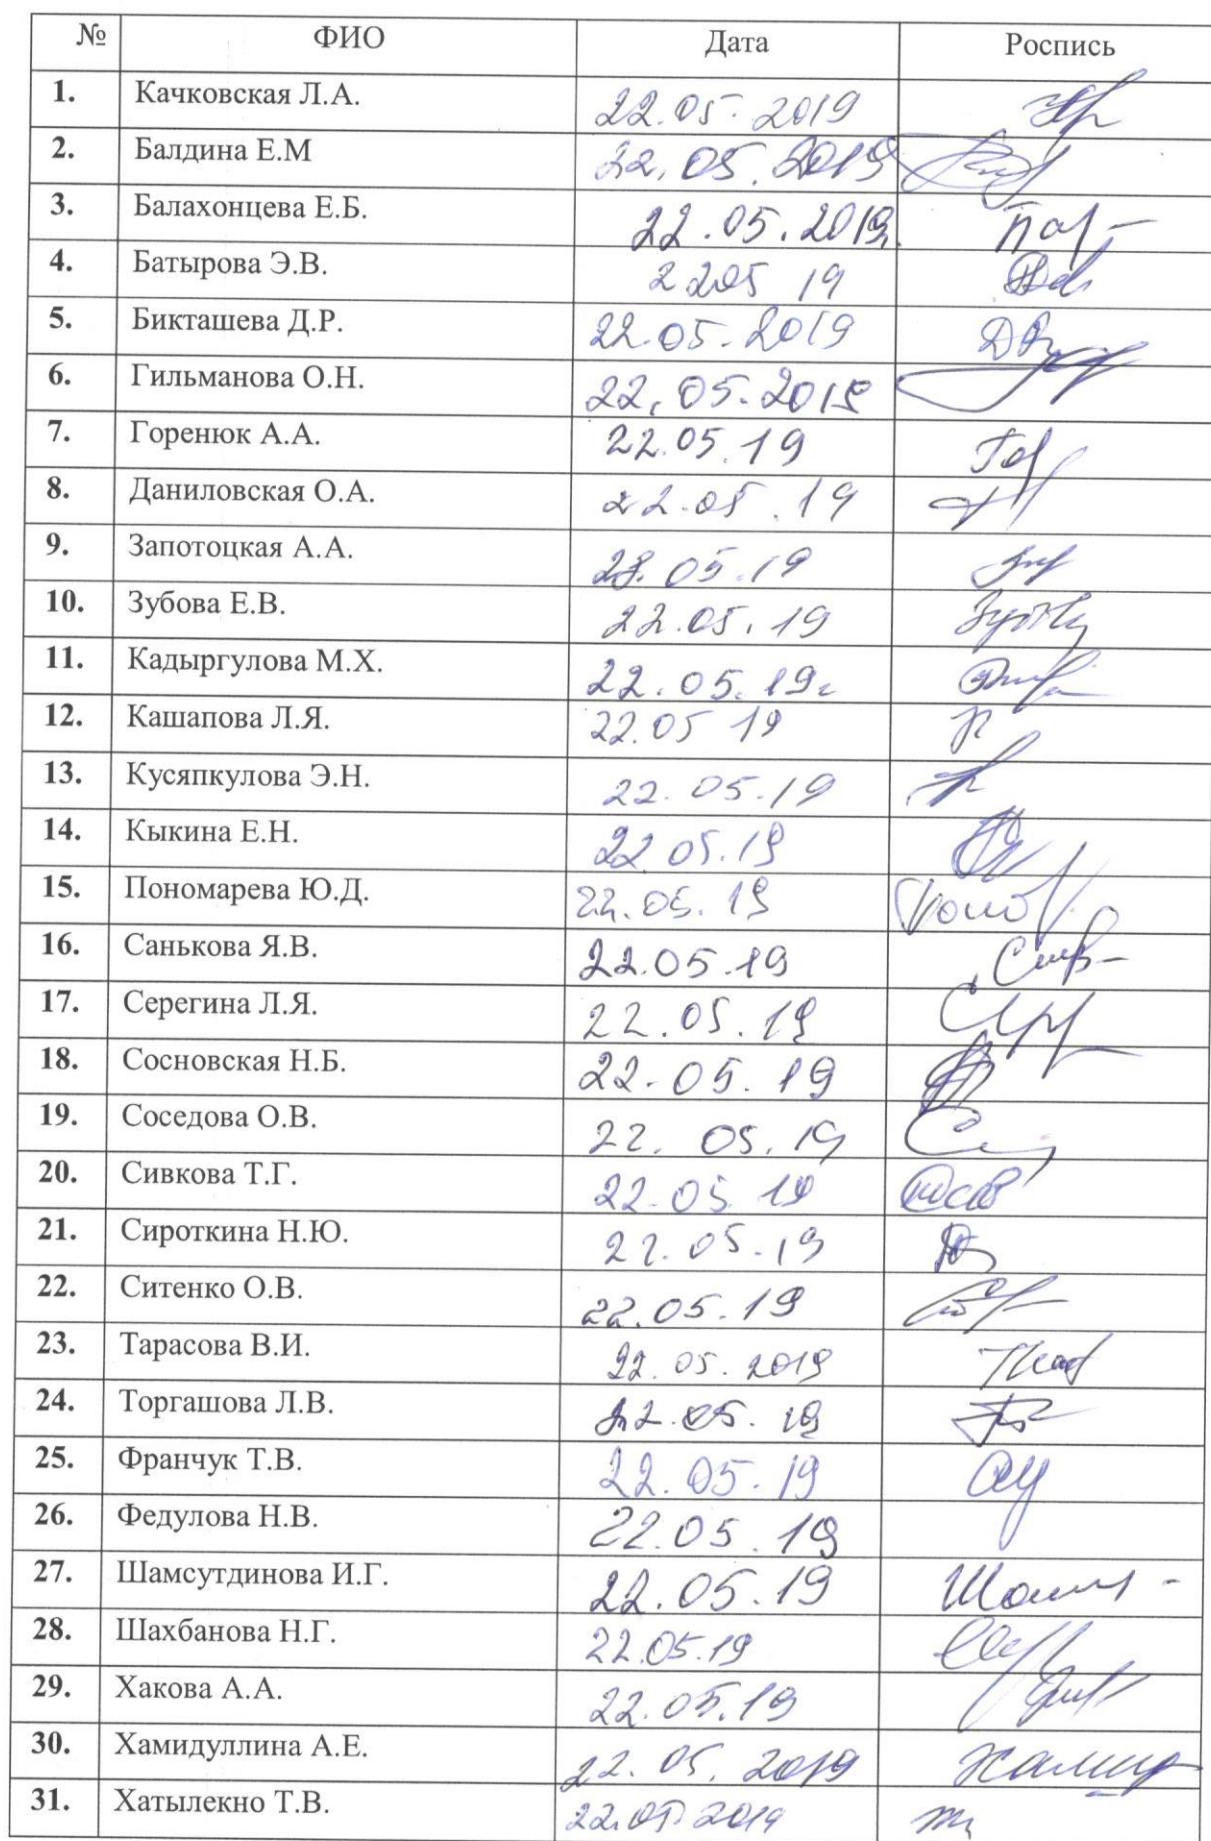 № ФИО Дата Роспись
1. Качковская Л.А. 22.05.2019
2. Балдина Е.М 22.05.2019
3. Балахонцева Е.Б. 22.05.2019
4. Батырова Э.В. 22 05 19
5. Бикташева Д.Р. 22.05.2019
6. Гильманова О.Н. 22.05.2019
7. Горенюк А.А. 22.05.19
8. Даниловская О.А. 22.05.19
9. Запотоцкая А.А.
10. Зубова Е.В. 22.05.19
11. Кадыргулова М.Х. 22.05.19г
12. Кашапова Л.Я. 22.05 19
13. Кусяпкулова Э.Н. 22.05.19
14. Кыкина Е.Н. 22 05.19
15. Пономарева Ю.Д. 22.05.19
16. Санькова Я.В. 22.05.19
17. Серегина Л.Я. 22.05.19
18. Сосновская Н.Б. 22.05.19
19. Соседова О.В. 22.05.19
20. Сивкова Т.Г. 22.05 19
21. Сироткина Н.Ю. 22.05.19
22. Ситенко О.В. 22.05.19
23. Тарасова В.И. 22.05.2019
24. Торгашова Л.В. 22.05.19
25. Франчук Т.В. 22.05.19
26. Федулова Н.В. 22.05.19
27. Шамсутдинова И.Г. 22.05.19
28. Шахбанова Н.Г. 22.05.19
29. Хакова А.А. 22.05.19
30. Хамидуллина А.Е. 22.05.2019
31. Хатылекно Т.В. 22.05 2019